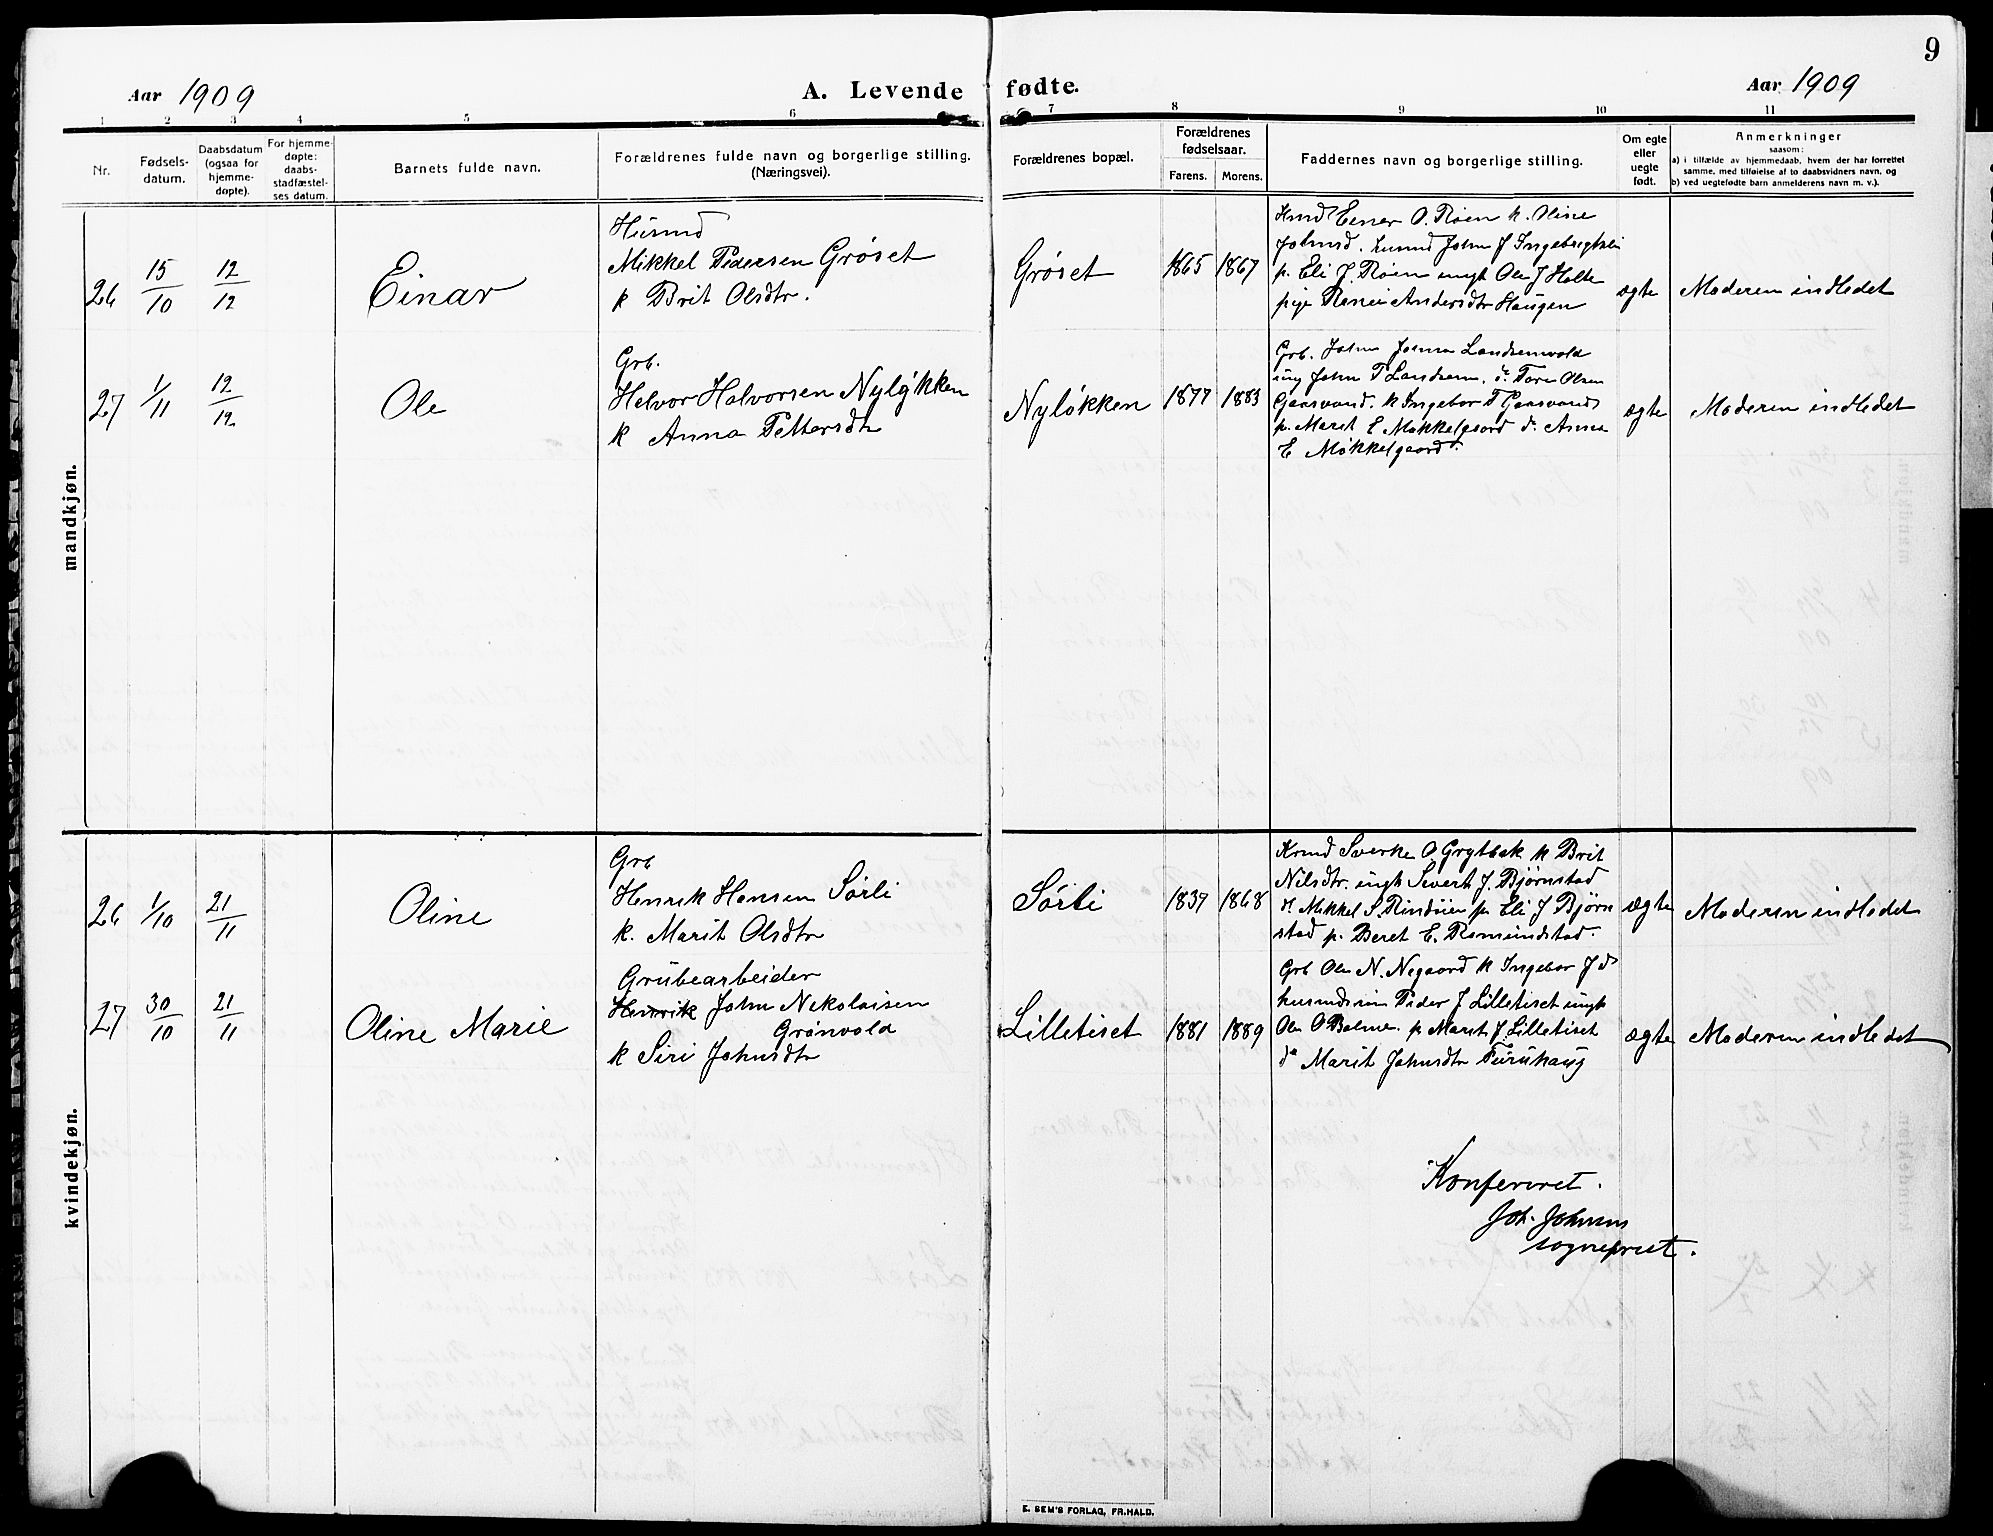 9
Aar 1909
A. Levende fødte.
Aar 1909
1 2 3 4 5 6 7 8 9 10 11
Nr.
Fødsels-
datum.
Daabsdatum
(ogsaa for
hjemme-
døpte).
For hjemme-
døpte:
daabs-
stadfæstel-
ses datum.
Barnets fulde navn.
Forældrenes fulde navn og borgerlige stilling.
(Næringsvei).
Forældrenes bopæl.
Forældrenes
fødselsaar.
Farens. Morens.
Faddernes navn og borgerlige stilling.
Om egte
eller
uegte
født.
Anmerkninger
saasom:
a) i tilfælde av hjemmedaab, hvem der har forrettet
samme, med tilføielse af to daabsvidners navn, og
b) ved uegtefødte barn anmelderens navn m. v.).
mandkjøn.
26 15/10 12/12 Einar
Husmd
Mikkel Pedersen Grøset
k Brit Olsdtr.
Grøset 1865 1867
Kmd Einar O. Røen k. Oline
Johnsd. husmd John J Ingebrigtsli
p. Eli J. Røen ungk Ole J Holte
pige Andersdtr Haugen
ægte Moderen indledet
27 1/11 12/12 Ole
Grb.
Helvor Halvorsen Nyløkken
k Anna Pettersdtr
Nyløkken 1877 1883
Grb. John Landsemvold
ung John T Landsem. d. Tore Olsen
Gaasvand. k Ingebor T Gaasvand
p. Marit E Møkkelgaard d. Anna
E Møkkelgaard.
ægte Moderen indledet
kvindekjøn.
26 1/10 21/11 Oline
Grb
Henrik Hansen Sørli
k. Marit Olsdtr
Sørli 1837 1868
Kmd Sverke O. Grytbak k Brit
Nilsdtr. ungk Sivert J. Bjørnstad
d. Mikkel S. Rindlien p. Eli J Bjørn
stad p. Beret E. Romundstad.
ægte Moderen indledet
27 30/10 21/11 Oline Marie
Grubearbeider
Henrik John Nekolaisen
Grønvold
k Siri Johnsdtr
Lilletiset 1881 1889
Grb Ole N. Negaard k Ingebor J d
Peder J Lilletiset ungk
Ole O Bolme. p. Marit J. Lilletiset
do Marit Johnsdtr Furuhaug
ægte Moderen indledet
Konfereret.
Joh. Johnsen
sogneprest.
E. SEM'S FORLAG, FR.HALD.